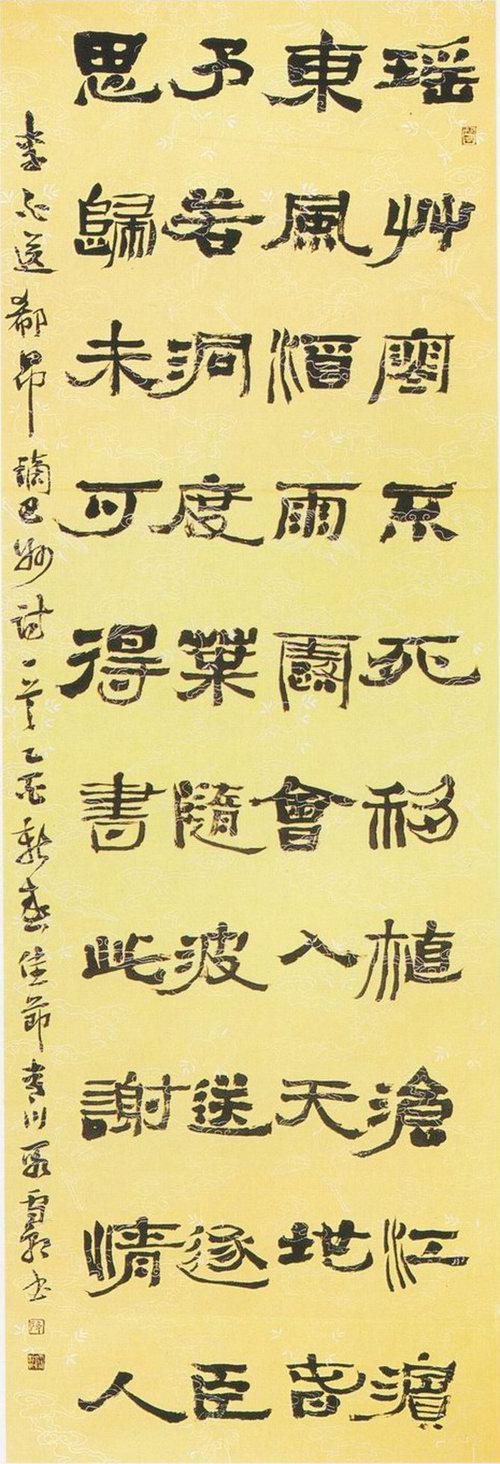 瑤艸寒不死移植滄江濱
東風洒雨露會入天地春
予若洞庭葉隨波送逐臣
思歸未可得書此謝情人
李白送郗昂謫巴州詩一首乙酉新春佳節書